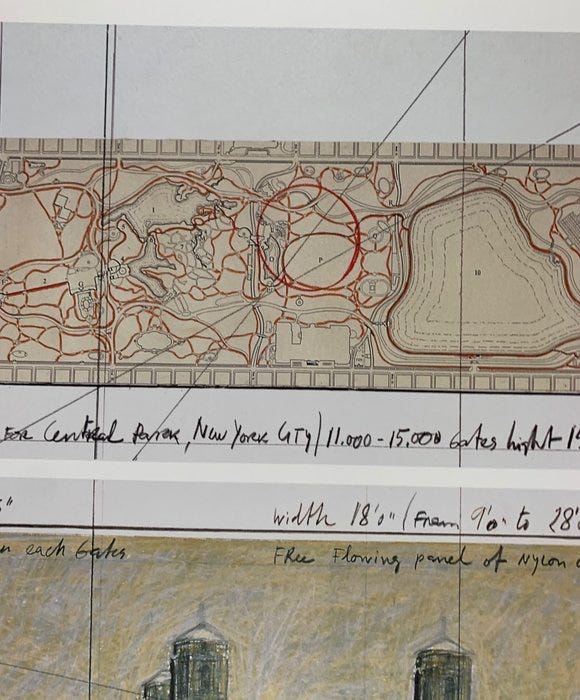 10
P
FOR Central Park, New York City / 11.000 - 15.000 Gates hight - 15
5"
width 18'0" (From 9'0" to 28'
n each Gates
FRee Flowing panel of Nylon